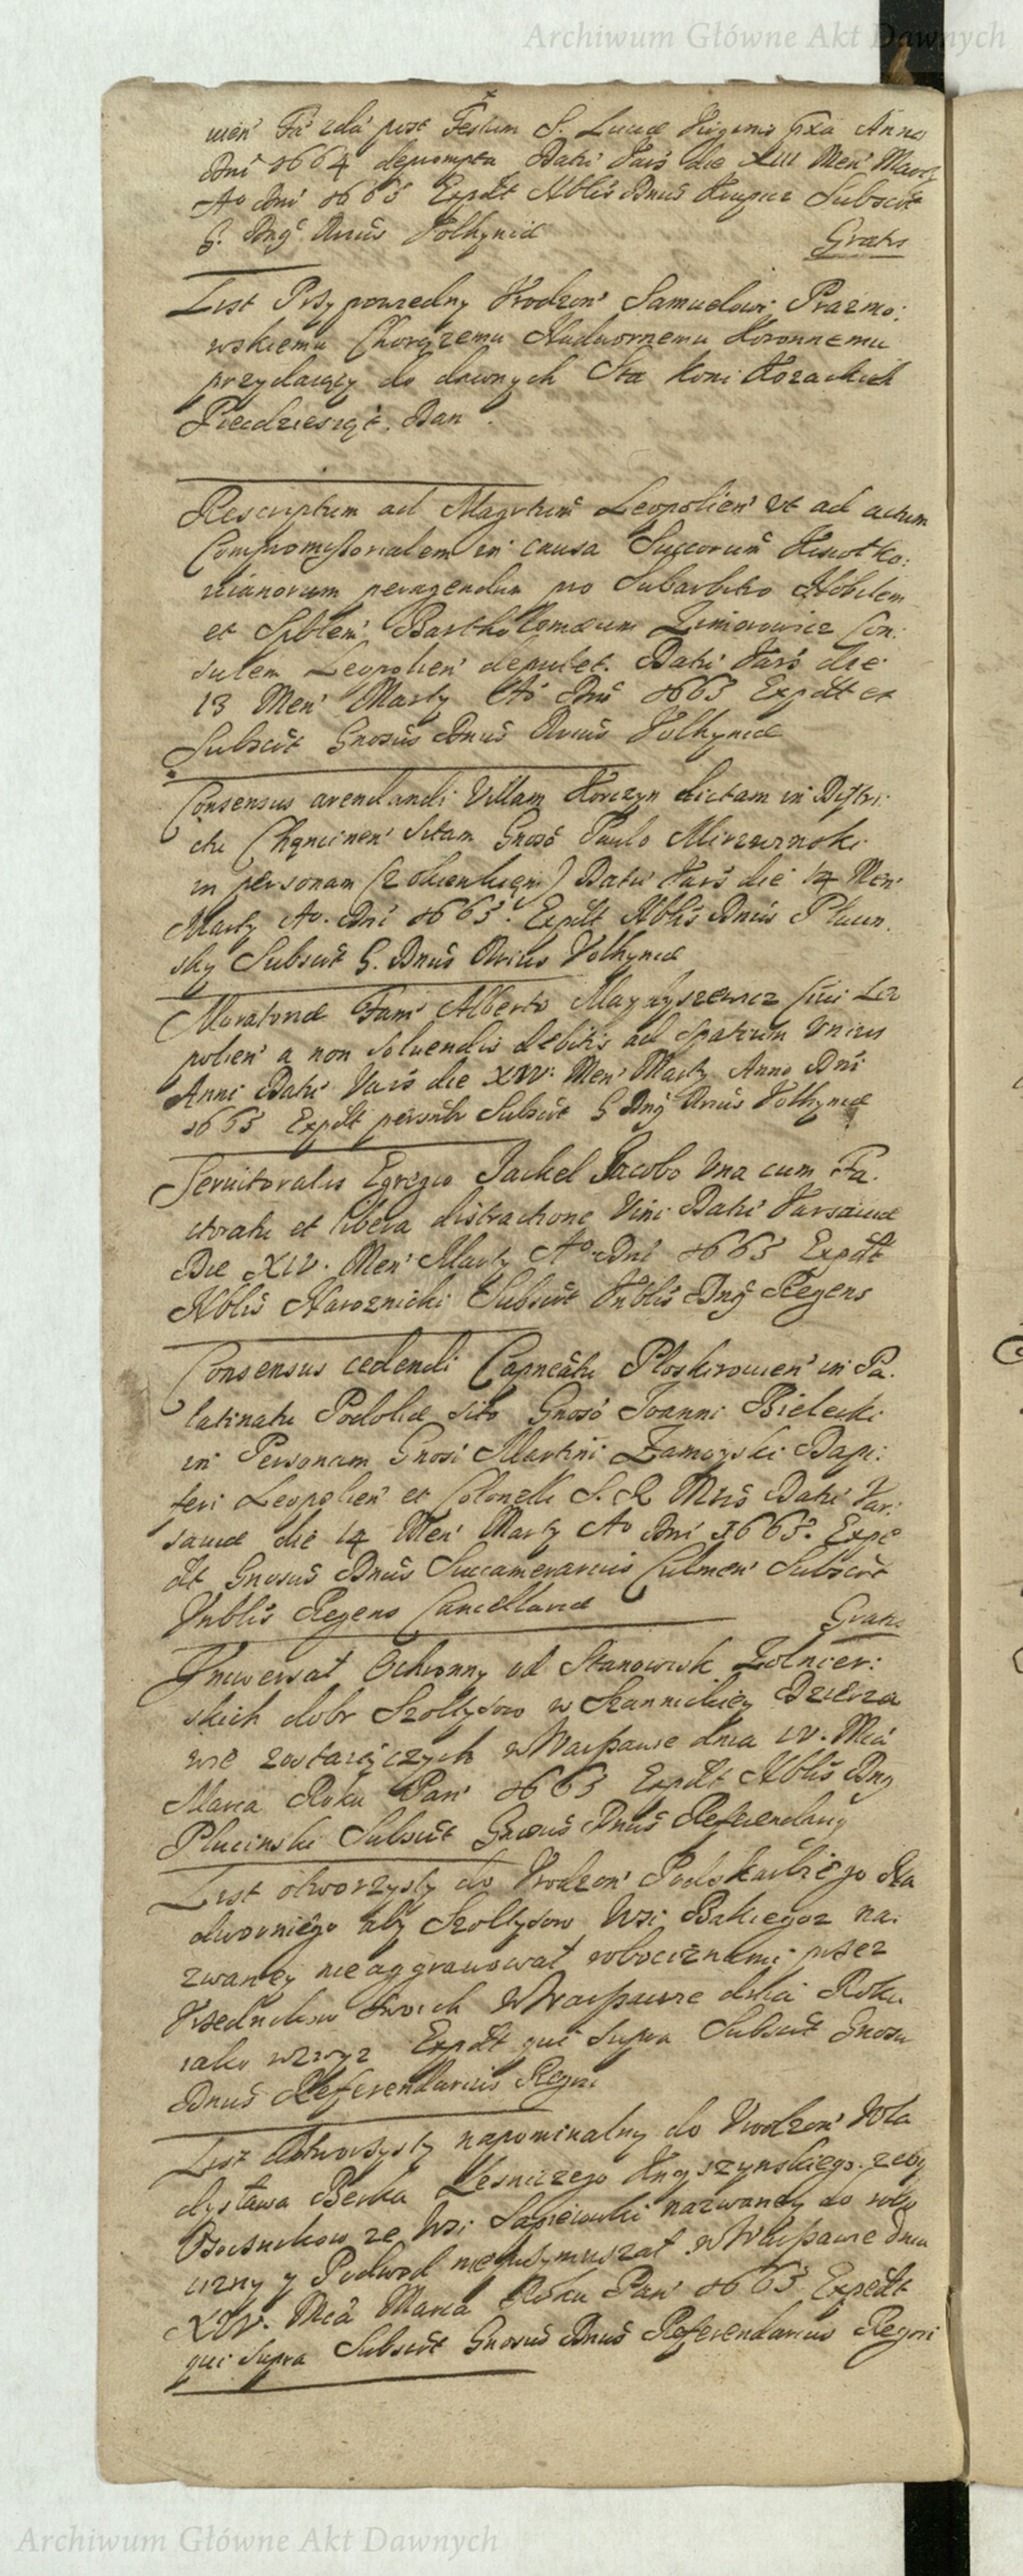 Archiwum Główne Akt Dawnych
post Festum S. Luciæ Virginis Anno
Dni 1664 depromptu Dati Vars die XIII Men Marty
Ao Dni 1663 Expdt Nblis Dnus Subscrit
G. Dnus Volhyniæ
Gratis
List Przypowiedny Urodzon Samuelowi Prazmo:
wskiemu Chorązemu Nadwornemu Koronnemu
przydaiący do dawnych Sta koni Kozackich
Piecdziesiąt. Dan.
Rescriptum ad Magrtum Leopolien ut ad actum
Compromissorialem in causa
peragendum pro Subarbitro Nobilem
et Spblem Bartholomæum Zimorowicz Con:
sulem Leopolien deputet. Dati Vars die
13 Men Marty Ao Dni 1663 Expdt et
Subscrit Gnosus Dnus Volhyniæ
Consensus arendandi Villam Korczyn dictam in Distri:
ctu Chęncinen Sitam Gnoso Paulo
in personam (z okienkiem) Dati Vars die 14 Men
Marty Ao. Dni 1663. Expdt Nblis Dnus Plucin
sky Subscrit G. Dnus Volhyniæ
Moratoriæ Fam Alberto Civi Leo
polien a non soluendis debitis ad spatium unius
Anni Dati Vars die XIV. Men Marty Anno Dni
1663 Expdt Subscrit G Dnus Volhyniæ
Servitoralis Egregio Jackel Jacobo Una cum Fa:
ctoratu et libera distractione Vini Dati Varsaviæ
Die XIV. Men Marty Ao Dni 1663 Expdt
Nblis Naroznicki Subscrit Dnus Regens
Consensus cedendi Capneatu Ploskirowien in Pa:
latinatu Podoliæ sito Gnoso Joanni Bielecki
in Personam Gnosi Martini Zamoyski Dapi:
feri Leopolien et Colonelli S. R Mtis Dati Var:
saviæ die 14 Men Marty Ao Dni 1663. Expe
dt Gnosus Dnus Succamerarius Culmen Subscrit
Regens Cancellariæ
Gratis
Uniwersał Ochronny od Stanowisk Zołnier:
skich dobr Szołtysow w Dzierza
wie zostaiączych w Warszawie dnia Mca
Marca Roku Pan 1663 Expdt Nblis Dnus
Plucinski Subscrit Gnosus Dnus Referendarius
List otworzysty do Urodzon Podskarbiego Na
dwornego aby Szołtysow Wsi na:
zwaney nie aggrauował robociznami przez
Urzednikow swoich w Warszawie dnia Roku
iako wzwyz Expdt qui supra Subscrit Gnosus
Dnus Referendarius Regni
List Otworzysty napominalny do Urodzon Wła
dysława Beuka Lesniczego Knyszynskiego. zeby
Osocznikow ze Wsi nazwaney do robo
cizny y Podwod nie przymuszał w Warszawie Dnia
XIV. Mca Marca Roku Pan 1663 Expedt
qui supra Subscrit Gnosus Dnus Referendarius Regni
Archiwum Główne Akt Dawnych